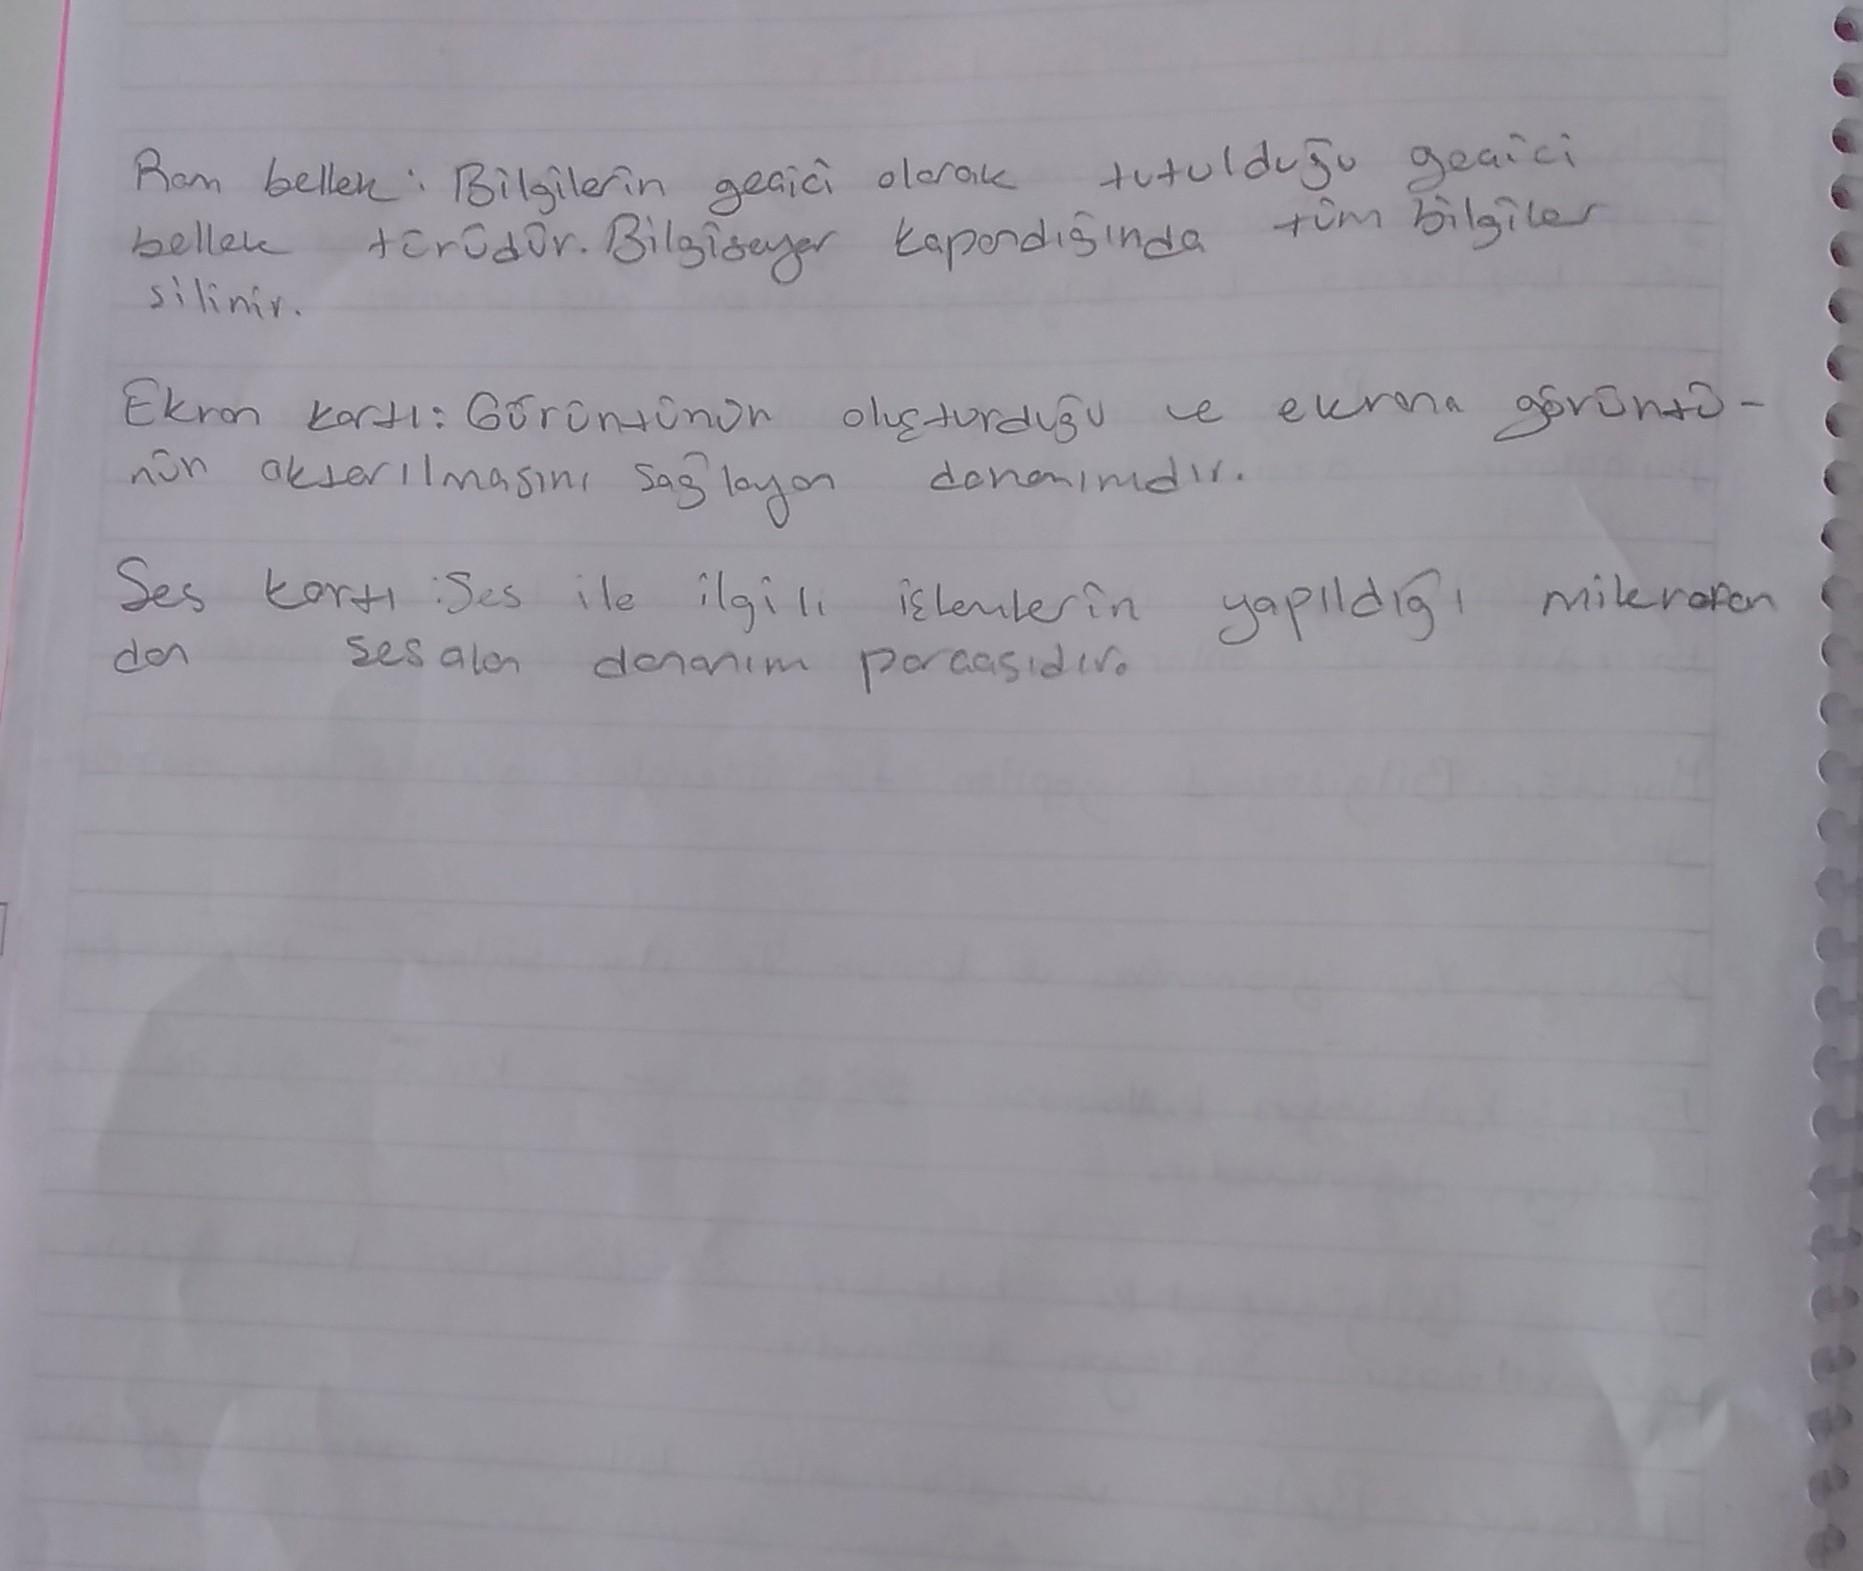 Ram bellek: Bilgilerin geçici olarak tutulduğu geçici
bellek türüdür. Bilgisayar kapandığında tüm bilgiler
silinir.
Ekran kartı: Görüntünün oluşturduğu ve ekrana görüntü-
nün aktarılmasını sağlayan donanımdır.
Ses kartı: Ses ile ilgili işlemlerin yapıldığı mikrofon
dan ses alan donanım parçasıdır.